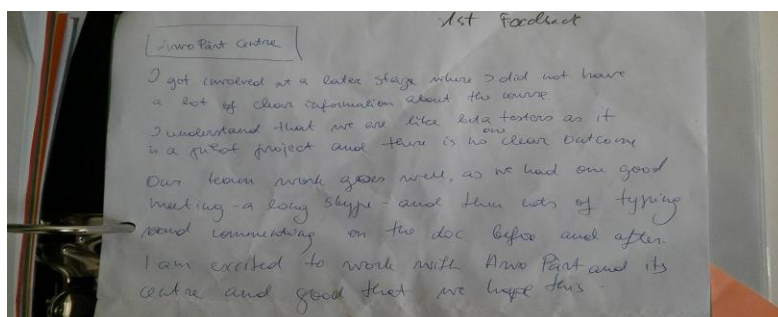 1st Feedback
Arvo Pärt Centre
I got involved at a later stage where I did not have
a lot of clear information about the course
I understand that we are like beta testers as it
is a pilot project and there is no one clear outcome
Our team work goes well, as we had one good
meeting - a long skype - and then lots of typing
and commenting on the doc before and after.
I am excited to work with Arvo Pärt and its
centre and good that we have this.